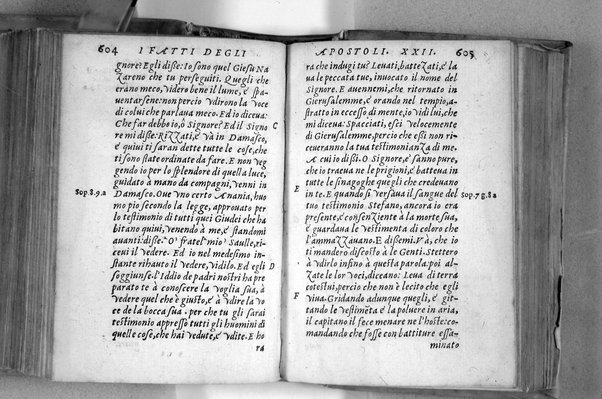 604 I FATTI DEGLI
gnore? Egli disse: Io sono quel Giesu Na
Zareno che tu perseguiti. Quegli che
erano meco, videro bene il lume, e spa-
uentarsene: non percio vdirono la voce
di colui che parlaua meco. Ed io diceua:
Che far debbo io, ò Signore? Ed il Signo
re mi disse: RizZati, e và in Damasco,
e quiui ti saran dette tutte le cose, che
ti sono state ordinate da fare. E non veg
gendo io per lo splendore di quella luce,
guidato à mano da compagni, venni in
Damasco. Oue vno certo Anania, huo
mo pio secondo la legge, approuato per
lo testimonio di tutti quei Giudei che ha
bitano quiui, venendo à me, e standomi
auanti: disse. O' fratel mio Saulle, ri-
ceui il vedere. Ed io nel medesimo in-
stante rihauto il vedere, vidilo. Ed egli
soggiunse. l'Iddio de padri nostri ha pre
parato te à conoscere la voglia sua, à
vedere quel che è giusto, e à vdire la vo
ce de la bocca sua. per che tu gli sarai
testimonio appresso tutti gli huomini di
quelle cose, che hai vedute, e vdite. E ho
ra
Sop. 8. 9. a
C
D
APOSTOLI. XXII. 605
ra che indugi tu? Leuati, battezati, e la
ua le peccata tue, inuocato il nome del
Signore. E auuennemi, che ritornato in
Gierusalemme, e orando nel tempio, a-
stratto in eccesso di mente, io vidi lui, che
mi diceua: Spacciati, e sci velocemente
di Gierusalemme, percio che essi non ri-
ceueranno la tua testimonianza di me.
A cui io dissi. O Signore, e sanno pure,
che io traeua ne le prigioni, e batteua in
tutte le sinagoghe quegli che credeuano
in te. E quando si versaua il sangue del
tuo testimonio Stefano, ancora io era
presente, e consenziente à la morte sua,
e guardaua le vestimenta di coloro che
l'ammazZauano. E dissemi. Và, che io
ti mandero discosto à le Genti. Stettero
à vdirlo infino à questa parola: poi al-
zate le lor voci, diceano: Leua di terra
cotestui, percio che non è lecito che egli
viua. Gridando adunque quegli, e git-
tando le vestimēta e la poluere in aria,
il capitano il fece menare ne l'hoste: co-
mandando che fosse con battiture essa-
minato
E
F
Sop. 7 g. 8 a